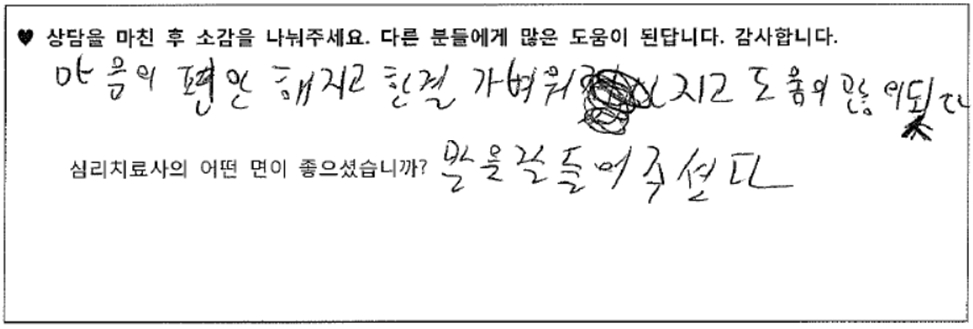 ♥ 상담을 마친 후 소감을 나눠주세요. 다른 분들에게 많은 도움이 된답니다. 감사합니다.
마음의 편안해지고 한결 가벼워 지고 도움의 많이 됬다
심리치료사의 어떤 면이 좋으셨습니까? 말을 잘 들어주셨다